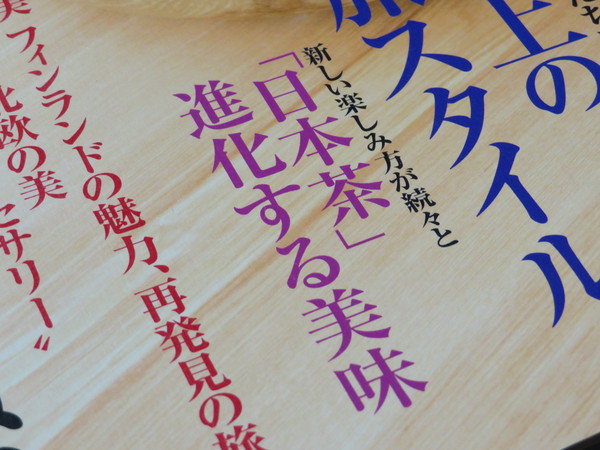 上の
スタイル
新しい楽しみ方が続々と
「日本茶」
進化する美味
フィンランドの魅力、再発見の旅
北欧の美
サリー〟